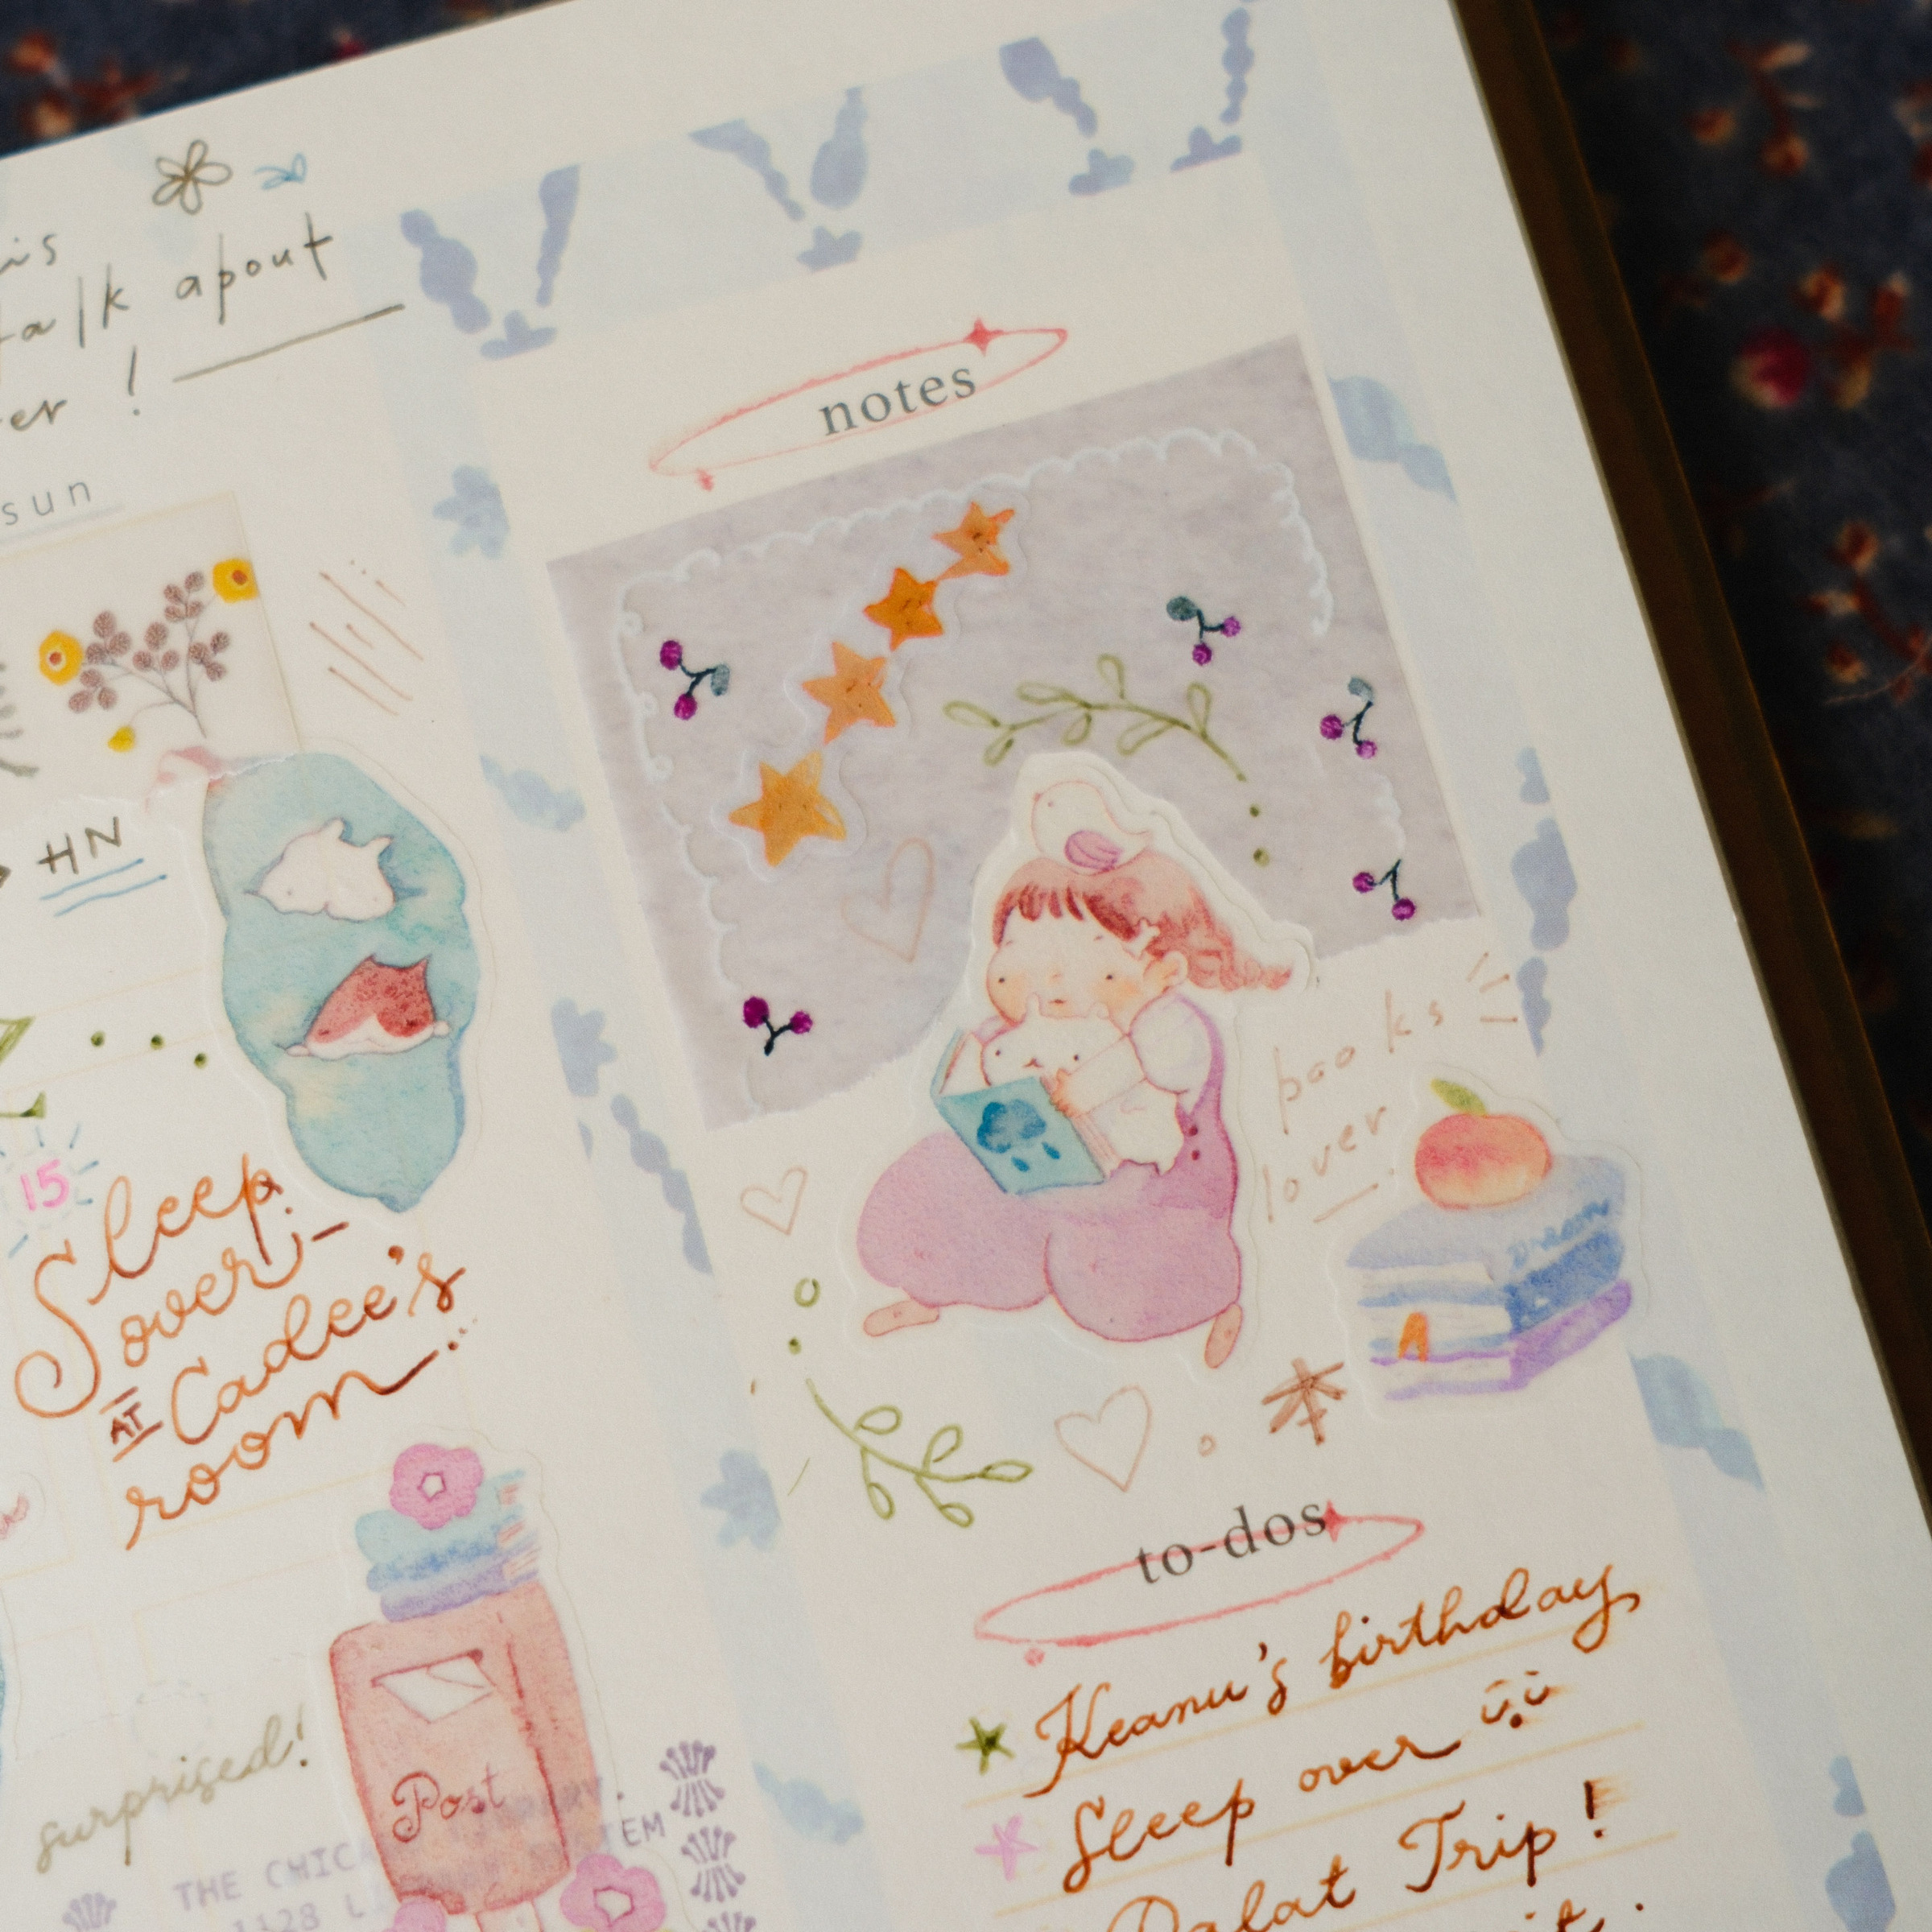 is
talk about
er !
sun
HN
15
Sleep
over
AT Cadee's
room
surprised!
Post
THE CHICA
1128 L
TEM
notes
books
lover
Dream
to-dos
Keanu's birthday
Sleep over
Dalat Trip !